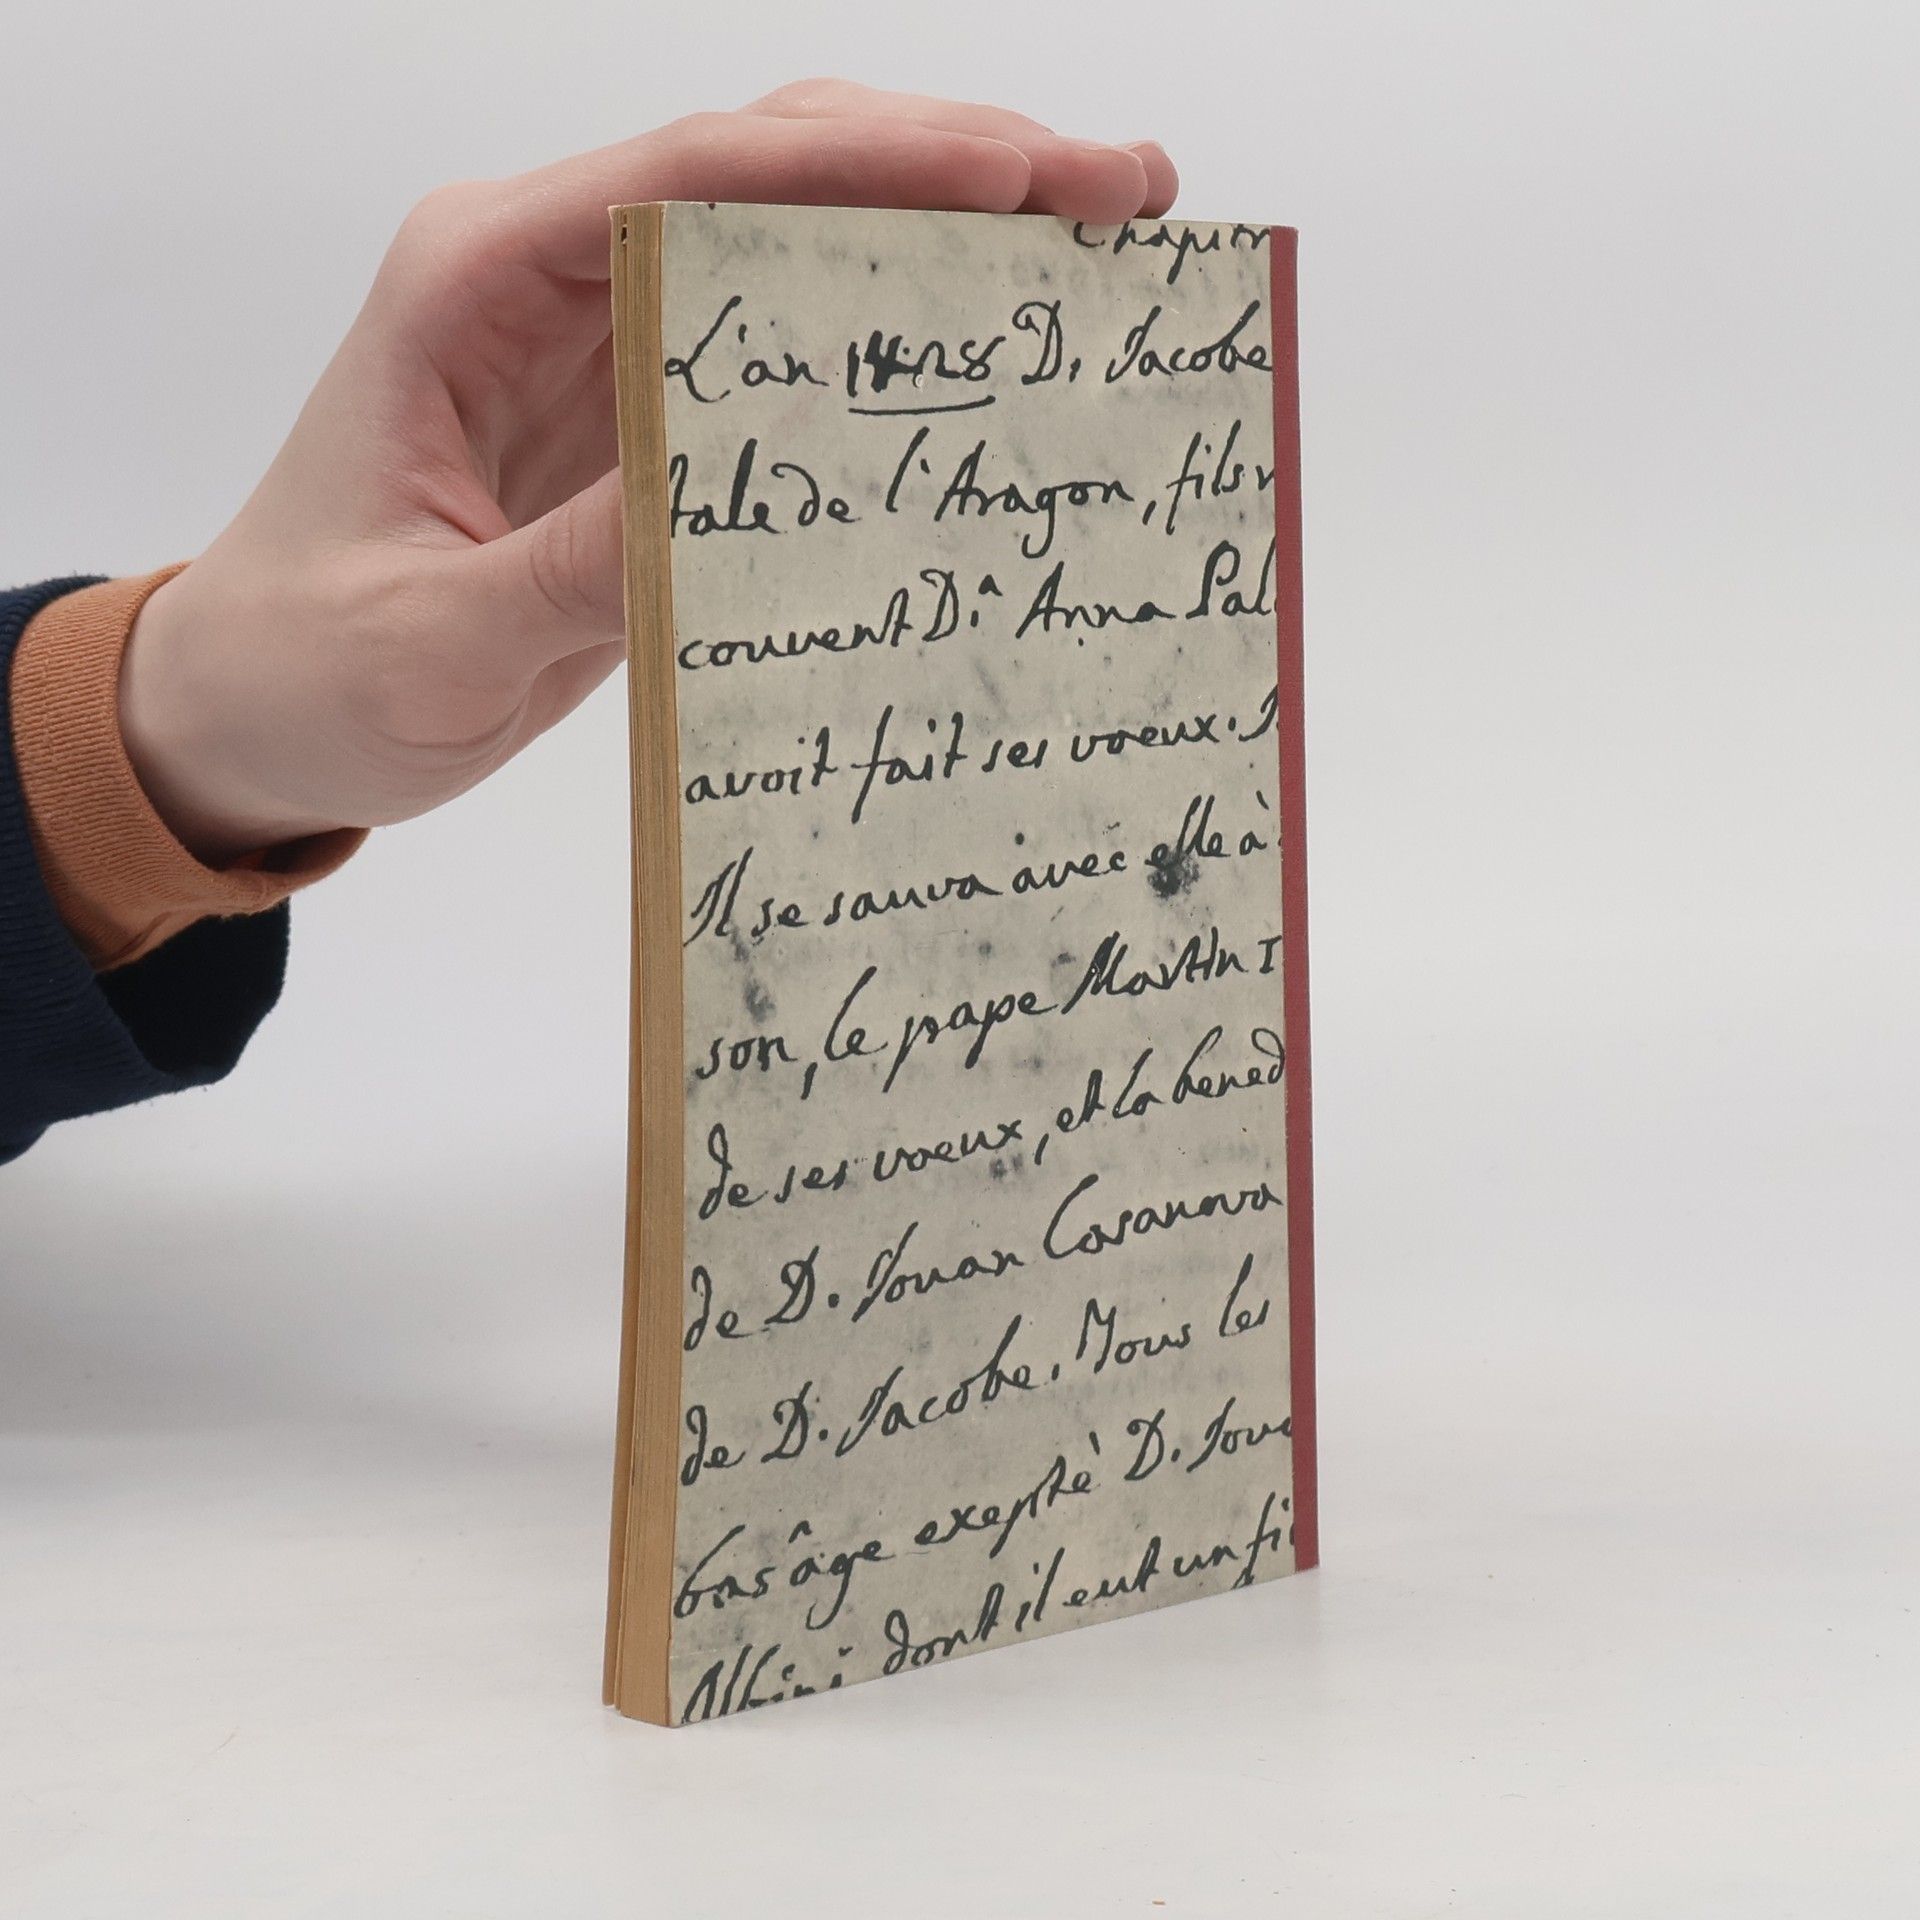 Chapitr
L'an 1428 D. Jacobe
tale de l'Aragon, fils n
couvent D.ª Anna Pal
avoit fait ses voeux.
Il se sauva avec elle à
son, le pape Martin I
de ses voeux, et la bened
de D. Jouan Casanova
de D. Jacobe. Tous les
bas âge exeptè D. Joua
Albini dont il eut un fi